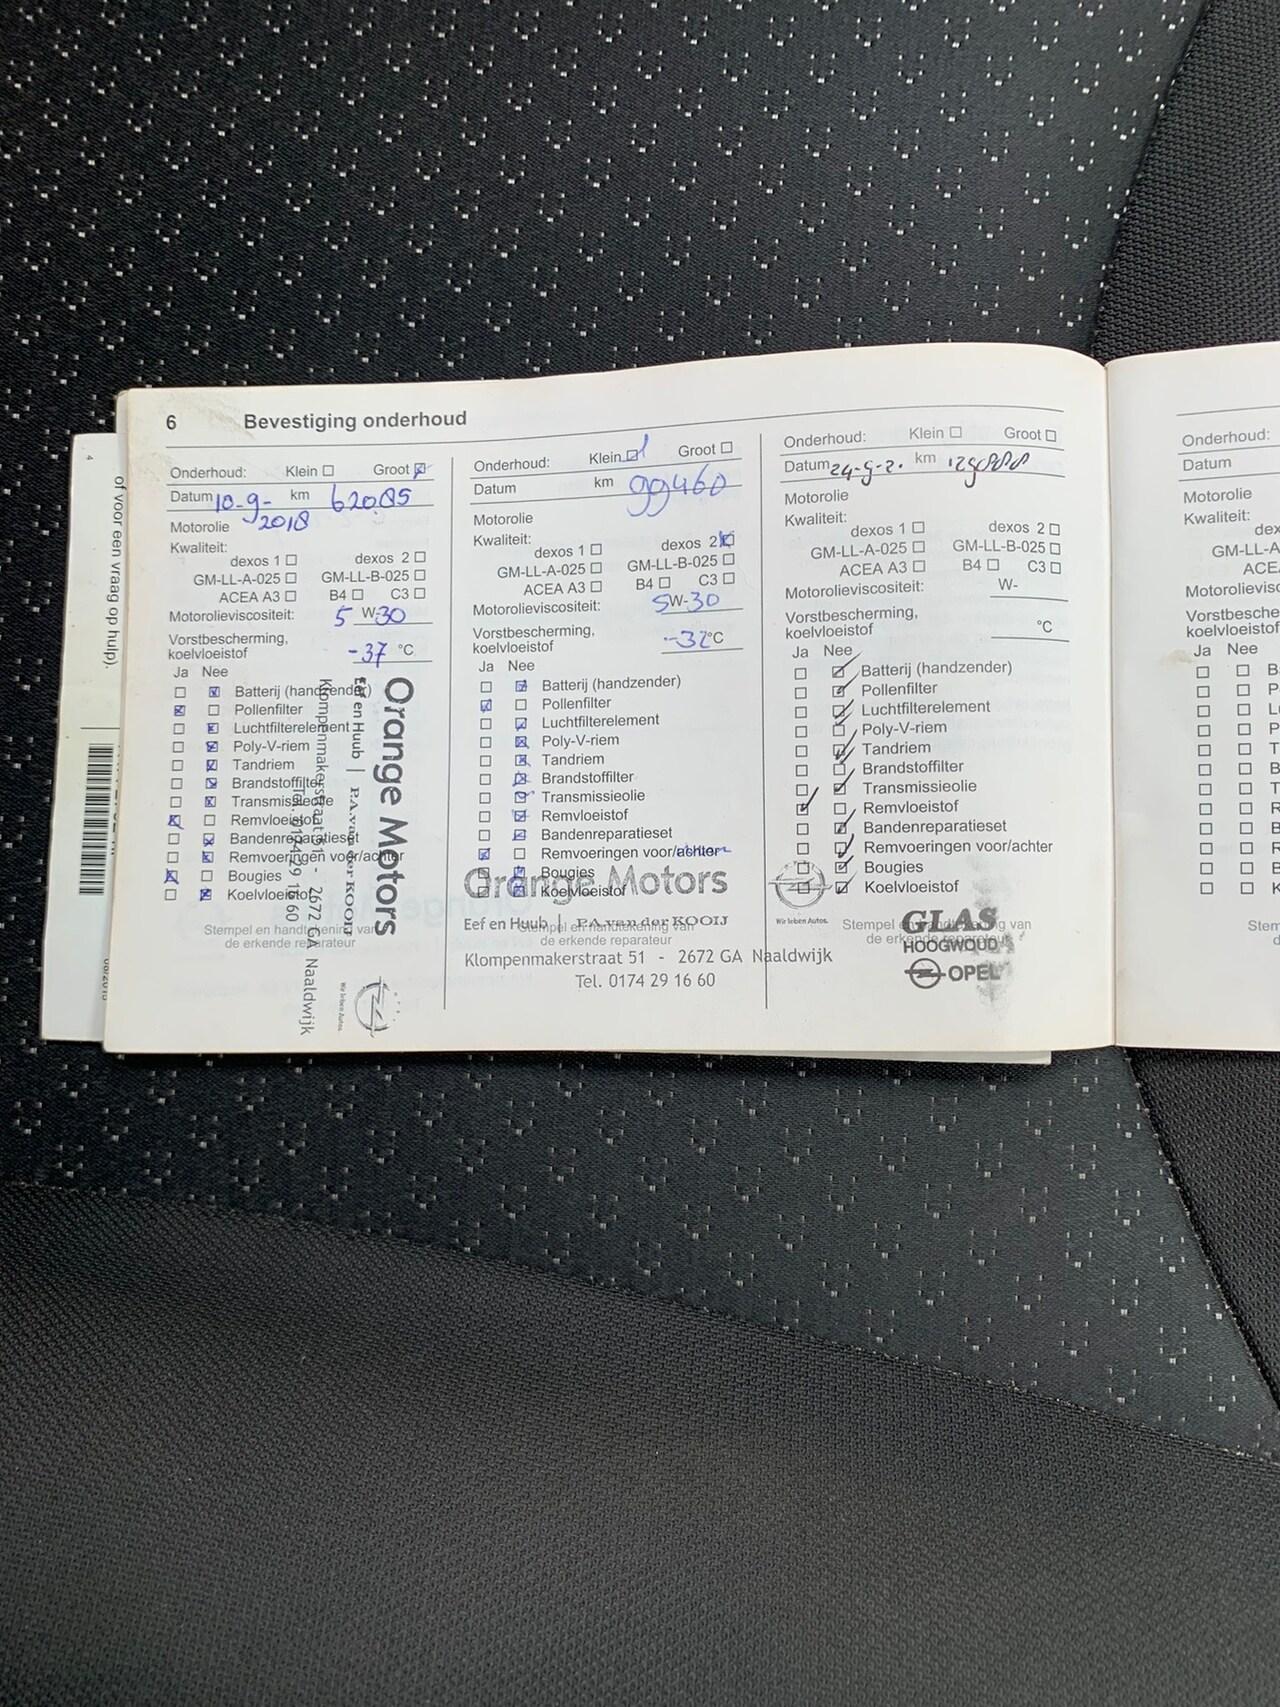 6 Bevestiging onderhoud
Onderhoud: Klein Groot
Datum 10-9-2018 km 62085
Motorolie
Kwaliteit:
dexos 1 dexos 2
GM-LL-A-025 GM-LL-B-025
ACEA A3 B4 C3
Motorolieviscositeit: 5 W-30
Vorstbescherming,
koelvloeistof -37 °C
Ja Nee
Batterij (handzender)
Pollenfilter
Luchtfilterelement
Poly-V-riem
Tandriem
Brandstoffilter
Transmissieolie
Remvloeistof
Bandenreparatieset
Remvoeringen voor/achter
Bougies
Koelvloeistof
Stempel en handtekening van
de erkende reparateur
Orange Motors
Eef en Huub | P.A. van der KOOIJ
Klompenmakerstraat 51 - 2672 GA Naaldwijk
Tel. 0174 29 16 60
Wir leben Autos.
Onderhoud: Klein Groot
Datum km 99460
Motorolie
Kwaliteit:
dexos 1 dexos 2
GM-LL-A-025 GM-LL-B-025
ACEA A3 B4 C3
Motorolieviscositeit: 5W-30
Vorstbescherming,
koelvloeistof -32°C
Ja Nee
Batterij (handzender)
Pollenfilter
Luchtfilterelement
Poly-V-riem
Tandriem
Brandstoffilter
Transmissieolie
Remvloeistof
Bandenreparatieset
Remvoeringen voor/achter
Bougies
Koelvloeistof
Stempel en handtekening van
de erkende reparateur
Orange Motors
Eef en Huub | P.A. van der KOOIJ
Klompenmakerstraat 51 - 2672 GA Naaldwijk
Tel. 0174 29 16 60
Wir leben Autos.
Onderhoud: Klein Groot
Datum 24-9-2. km
Motorolie
Kwaliteit:
dexos 1 dexos 2
GM-LL-A-025 GM-LL-B-025
ACEA A3 B4 C3
Motorolieviscositeit: W-
Vorstbescherming,
koelvloeistof °C
Ja Nee
Batterij (handzender)
Pollenfilter
Luchtfilterelement
Poly-V-riem
Tandriem
Brandstoffilter
Transmissieolie
Remvloeistof
Bandenreparatieset
Remvoeringen voor/achter
Bougies
Koelvloeistof
Stempel en handtekening van
de erkende reparateur
GLAS
HOOGWOUD
OPEL
Onderhoud:
Datum
Motorolie
Kwaliteit:
GM-LL-A
ACEA
Motorolievisc
Vorstbesche
koelvloeistof
Ja Nee
of voor een vraag op hulp).
4